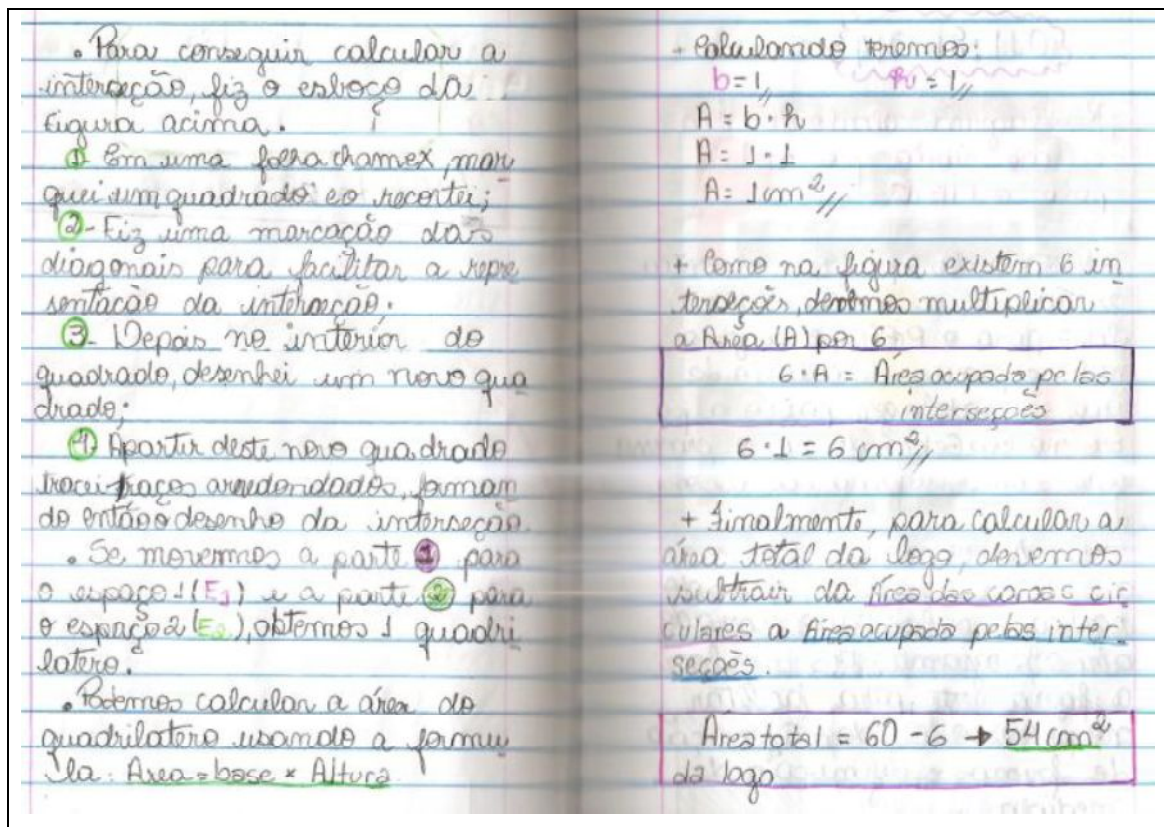 . Para conseguir calcular a
interseção, fiz o esboço da
figura acima.
① Em uma folha chamex, mar
quei um quadrado e o recortei;
②- Fiz uma marcação das
diagonais para facilitar a repre
sentação da interseção.
③- Depois no interior do
quadrado, desenhei um novo qua
drado;
④ Apartir deste novo quadrado
tracei traços arredondados, forman
do então o desenho da interseção.
. Se movermos a parte ① para
o espaço 1 (E1) e a parte ② para
o espaço 2 (E2), obtemos 1 quadri
latero.
. Podemos calcular a área do
quadrilatero usando a formu
la: Area = base × Altura
+ Calculando teremos:
b = 1 h = 1
A = b · h
A = 1 · 1
A = 1 cm²
+ Como na figura existem 6 in
terseções, devemos multiplicar
a Área (A) por 6
6 · A = Área ocupada pelas
interseções
6 · 1 = 6 cm²
+ Finalmente, para calcular a
área total da logo, devemos
subtrair da Área das coroas cir
culares a Área ocupada pelas inter
seções.
Área total = 60 - 6 → 54 cm²
da logo